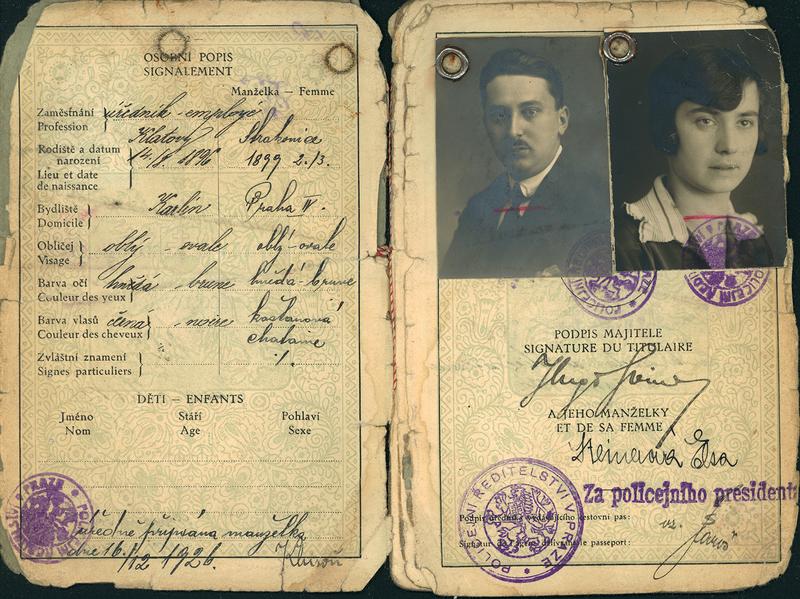 OSOBNÍ POPIS
SIGNALEMENT
Manželka – Femme
Zaměstnání
Profession
úředník - employé
Rodiště a datum
narození
Lieu et date
de naissance
Klatovy Strakonice
14./8. 1896 1899 2./3.
Bydliště
Domicile
Karlín Praha IV.
Obličej
Visage
oblý - ovale oblý - ovale
Barva očí
Couleur des yeux
hnědá - brune hnědá - brune
Barva vlasů
Couleur des cheveux
černá - noire kaštanová
chataine
Zvláštní znamení
Signes particuliers
DĚTI – ENFANTS
Jméno Stáří Pohlaví
Nom Age Sexe
úředně připsána manželka
dne 16./12 1926.
PODPIS MAJITELE
SIGNATURE DU TITULAIRE
Hugo
A JEHO MANŽELKY
ET DE SA FEMME
Elsa
Za policejního president
Podpis úředníka vydávajícího cestovní pas:
vz.
POLICEJNÍ ŘEDITELSTVÍ V PRAZE